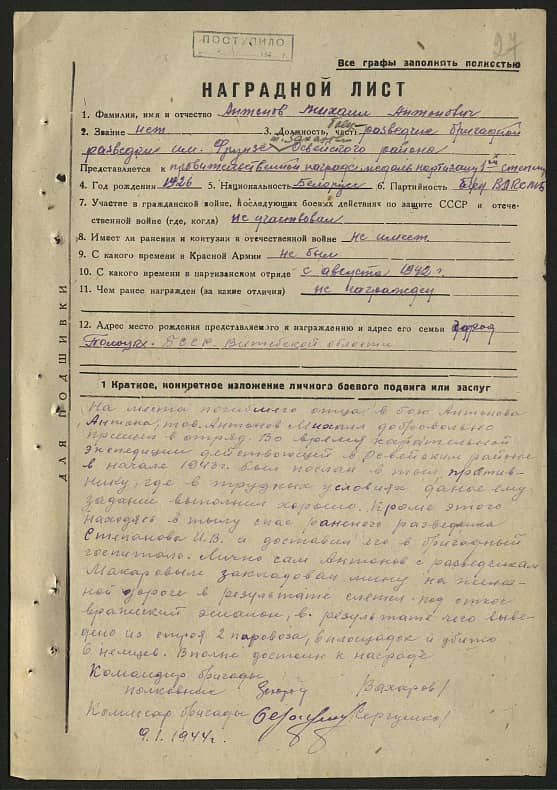 ПОСТУПИЛО
27
Все графы заполнять полностью
НАГРАДНОЙ ЛИСТ
1. Фамилия, имя и отчество Антонов Михаил Антонович
2. Звание нет 3. Должность, часть разведчик бригадной
разведки им. Фрунзе Освейского района
Представляется к правительственной награде медаль партизану 1ой степени
4. Год рождения 1926 5. Национальность Беларус 6. Партийность ВЛКСМ
7. Участие в гражданской войне, последующих боевых действиях по защите СССР и отече-
ственной войне (где, когда) не участвовал
8. Имеет ли ранения и контузии в отечественной войне не имеет
9. С какого времени в Красной Армии не был
10. С какого времени в партизанском отряде с августа 1942 г.
11. Чем ранее награжден (за какие отличия) не награжден
12. Адрес место рождения представляемого к награждению и адрес его семьи город
Полоцк БССР Витебской области
ДЛЯ ПОДШИВКИ
1 Краткое, конкретное изложение личного боевого подвига или заслуг
На места погибшего отца в бою Антонова
Антона, тов. Антонов Михаил добровольно
пришел в отряд. Во время карательной
экспедиции действующей в Освейском районе
в начале 1943 г. был послан в тыл против-
нику, где в трудных условиях даное ему
задание выполнил хорошо. Кроме этого
находясь в тылу спас раненого разведчика
Степанова И.В. и доставил его в бригадный
госпиталь. Лично сам Антонов с разведчикам
Макаровым закладовал мину на желез-
ной дороге в результате слетел под откос
вражеский эшалон, в результате чего выве-
дено из строя 2 паровоза, 8 площадок и убито
6 немцев. Вполне достоин к награде
Командир бригады
полковник Захаров/
Комиссар бригады /Сергушко/
9.I.1944 г.